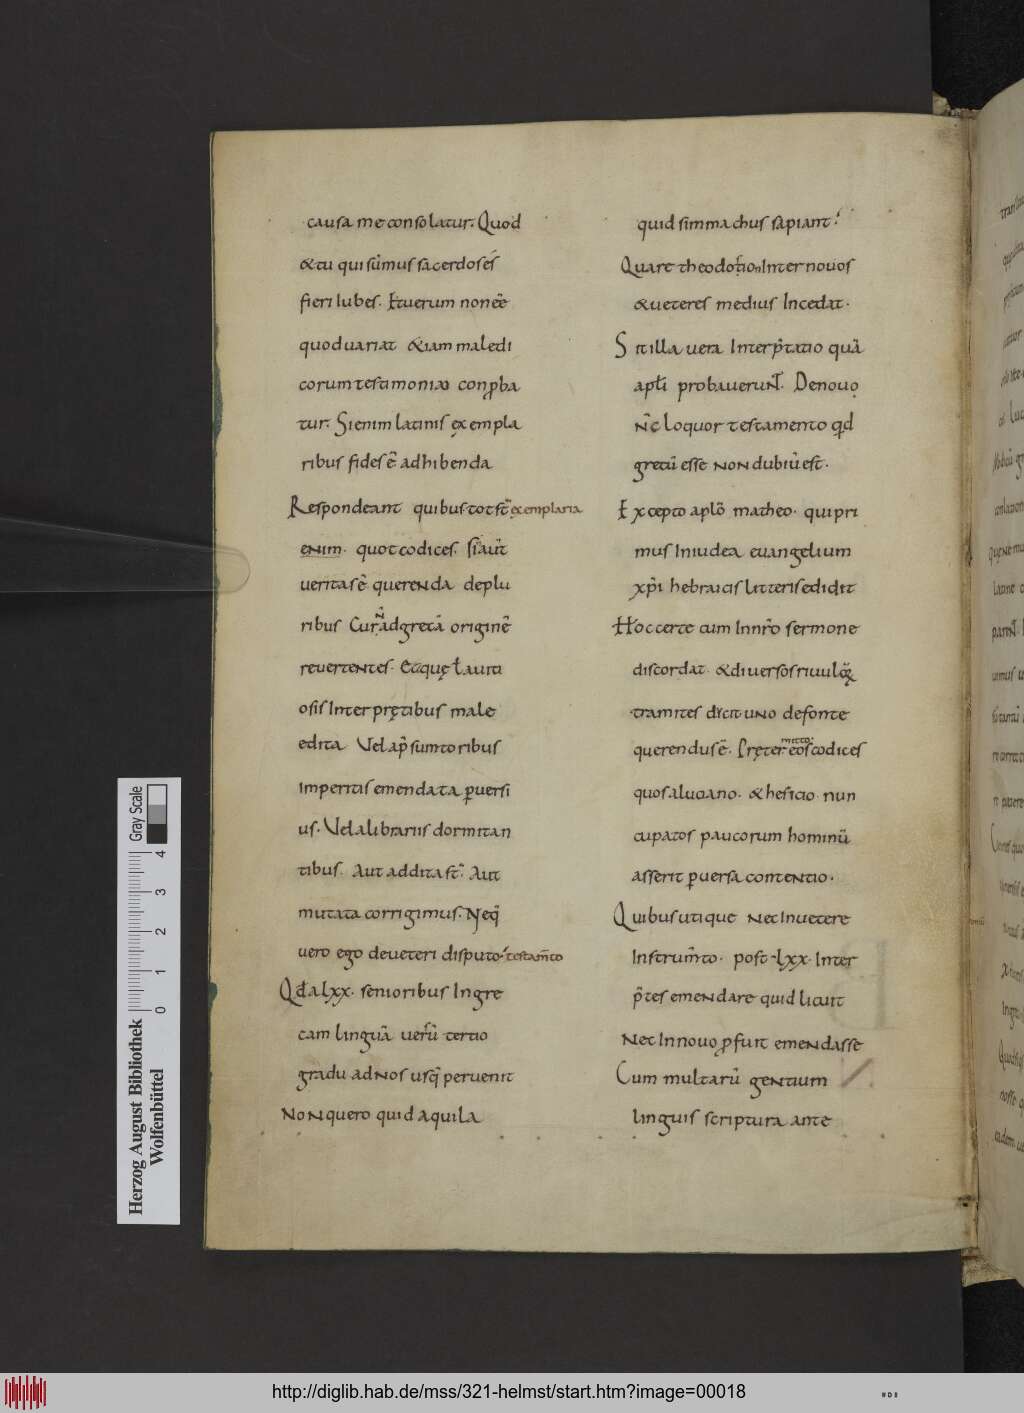 causa me consolatur. Quod
&tu qui sũmus sacerdos és
fieri iubes. Et uerum non eẽ
quod uariat &iam maledi
corum testimonia conꝓba
tur. Si enim latinis exempla
ribus fides ẽ adhibenda
Respondeant quibus tot st̃ exemplaria
enim. quot codices. Si aut̃
ueritas ẽ querenda de plu
ribus Cur ñ ad grecã origine᷈
reuertentes. Ea quę t̃ a uiti
osis Interprętibus male
edita Vel a p̃sumtoribus
Imperitis emendata ꝑuersi
us. Vel a librariis dormitan
tibus. Aut addita st̃. Aut
mutata corrigimus. Neq̃
uero ego de ueteri disputo testam̃to
Qđ a lxx. senioribus In gre
cam linguã uersũ tertio
gradu ad nos usq̃ peruenit
Non quero quid aquila
quid simmachus sapiant.
Quare theodotion Inter nouos
&ueteres medius Incedat.
Sit illa uera Interp̃tatio quã
apl̃i probauerunt. De nouo
ñc loquor testamento qđ
grecũ esse non dubiũ est.
Excepto aplõ matheo. qui pri
mus In iudea euangelium
xp̃i hebraicis litteris edidit
Hoc certe cum In nr̃o sermone
discordat. &diuersos riuuloꝝ
tramites ducit uno de fonte
querendus ẽ. Pręter mitto eos codices
quos a luciano. &hesicio nun
cupatos paucorum hominũ
asserit ꝑuersa contentio.
Quibus utique nec In uetere
Instrum̃to. post lxx. Inter
p̃tes emendare quid licuit
Nec In nouo ꝓfuit emendasse
Cum multarũ gentium
linguis scriptura ante
Herzog August Bibliothek
Wolfenbüttel
Gray Scale
0 1 2 3 4
http://diglib.hab.de/mss/321-helmst/start.htm?image=00018